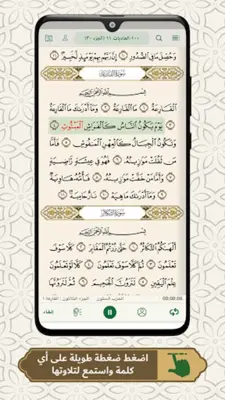 ١٠٠-العاديات ١١ (الجزء ٣٠)
وَحُصِّلَ مَا فِي الصُّدُورِ ۝ إِنَّ رَبَّهُم بِهِمْ يَوْمَئِذٍ لَّخَبِيرٌ ۝
سُورَةُ القَارِعَةِ
بِسْمِ اللَّهِ الرَّحْمَٰنِ الرَّحِيمِ
الْقَارِعَةُ ۝ مَا الْقَارِعَةُ ۝ وَمَا أَدْرَاكَ مَا الْقَارِعَةُ
۝ يَوْمَ يَكُونُ النَّاسُ كَالْفَرَاشِ الْمَبْثُوثِ ۝
وَتَكُونُ الْجِبَالُ كَالْعِهْنِ الْمَنفُوشِ ۝ فَأَمَّا
مَن ثَقُلَتْ مَوَازِينُهُ ۝ فَهُوَ فِي عِيشَةٍ رَّاضِيَةٍ
۝ وَأَمَّا مَنْ خَفَّتْ مَوَازِينُهُ ۝ فَأُمُّهُ هَاوِيَةٌ
۝ وَمَا أَدْرَاكَ مَا هِيَهْ ۝ نَارٌ حَامِيَةٌ ۝
سُورَةُ التَّكَاثُرِ
بِسْمِ اللَّهِ الرَّحْمَٰنِ الرَّحِيمِ
أَلْهَاكُمُ التَّكَاثُرُ ۝ حَتَّىٰ زُرْتُمُ الْمَقَابِرَ ۝ كَلَّا سَوْفَ
تَعْلَمُونَ ۝ ثُمَّ كَلَّا سَوْفَ تَعْلَمُونَ ۝ كَلَّا لَوْ تَعْلَمُونَ
عِلْمَ الْيَقِينِ ۝ لَتَرَوُنَّ الْجَحِيمَ ۝ ثُمَّ لَتَرَوُنَّهَا
00:00:06
إلغاء
اضغط ضغطة طويلة على أي
كلمة واستمع لتلاوتها